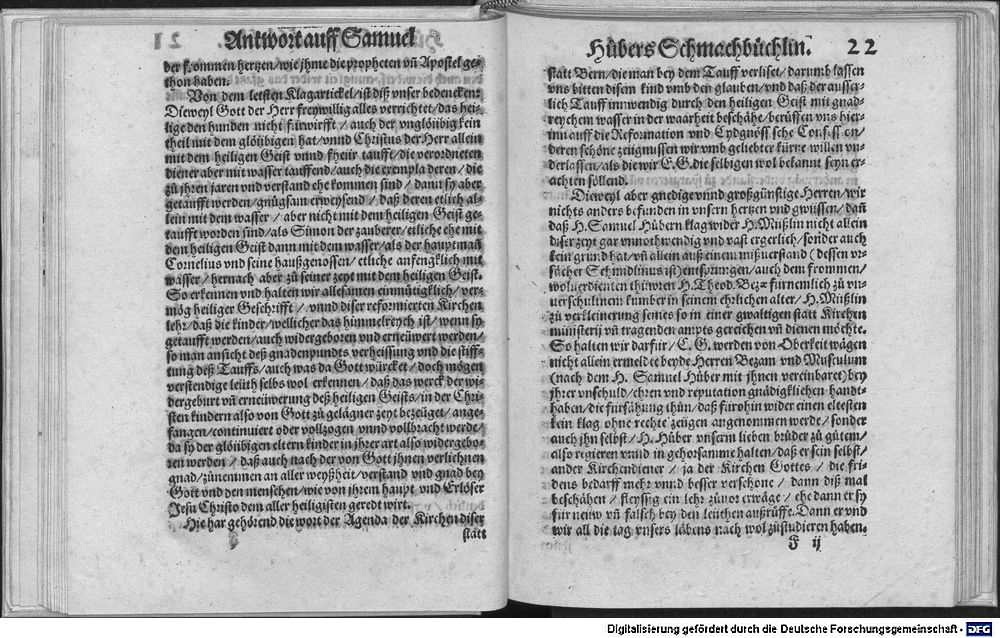 Antwort auff Samuel
der frommen hertzen/wie jhme die propheten vñ Apostel ge-
thon haben.
Von dem letsten Klagartickel/ist diß vnser bedencken:
Dieweyl Gott der Herr freywillig alles verrichtet/das hei-
lige den hunden nicht fürwirfft/ auch der vnglöübig kein
theil mit dem glöübigen hat/vnnd Christus der Herr allein
mit dem heiligen Geist vnnd fheür taufft/die verordneten
diener aber mit wasser tauffend/auch die exempla deren/die
zů jhren jaren vnd verstand ehe kommen sind/ dann sy aber
getaufft werden/gnůgsam erweysend/ daß deren etlich al-
lein mit dem wasser / aber nicht mit dem heiligen Geist ge-
taufft worden sind/als Simon der zauberer/etliche ehe mit
dem heiligen Geist dann mit dem wasser/als der hauptmañ
Cornelius vnd seine haußgenossen/etliche anfengklich mit
wasser/ hernach aber zů seiner zeyt mit dem heiligen Geist.
So erkennen vnd halten wir allesamen einmütigklich/ver-
mög heiliger Geschrifft / vnnd diser reformierten Kirchen
lehr/daß die kinder/wellicher das himmelreych ist/wenn sy
getaufft werden/auch widergeboren vnd erneüwert werden/
so man ansicht deß gnadenpundts verheissung vnd die stiff-
tung deß Tauffs/auch was da Gott würcket/doch mögen
verstendige leüth selbs wol erkennen/ daß das werck der wi-
dergeburt vñ erneüwerung deß heiligen Geists/in der Chri-
sten kindern also von Gott zů gelägner zeyt bezeüget/ange-
fangen/continuiert oder vollzogen vnnd vollbracht werde/
da sy der glöübigen eltern kinder in jhrer art also widergebo-
ren werden / daß auch nach der von Gott jhnen verlichnen
gnad/zůnemmen an aller weyßheit/verstand vnd gnad bey
Gott vnd den menschen/wie von jhrem haupt vnd Erlöser
Jesu Christo dem aller heiligisten geredt wirt.
Hie har gehörend die wort der Agenda der Kirchen diser
statt
Hůbers Schmachbüchlin. 22
statt Bern/die man bey dem Tauff verliset/ darumb lassen
vns bitten disem kind vmb den glauben/vnd daß der ausser-
lich Tauff innwendig durch den heiligen Geist mit gnad-
reychem wasser in der waarheit beschähe/berüffen vns hier-
inn auff die Reformation vnd Eydgnössische Confession/
deren schöne zeügnussen wir vmb geliebter kürtze willen vn-
derlassen/als die wir E.G.die selbigen wol bekannt seyn er-
achten söllend.
Dieweyl aber gnedige vnnd großgünstige Herren/wir
nichts anders befunden in vnsern hertzen vnd gwüssen/dañ
daß H. Samuel Hůbern klag wider H.Müßlin nicht allein
diser zeyt gar vnnothwendig vnd vast ergerlich/sonder auch
kein grund hat/vñ allein auß einem mißuerstand (dessen vr-
sächer Schmidlinus ist) entsprungen/auch dem frommen/
wolverdienten thüwren H.Theod.Bez= fürnemlich zů vn-
uerschultnem kumber in seinem ehrlichen alter/ H. Müßlin
zů verkleinerung seines so in einer gwaltigen statt Kirchen
ministerij vñ tragenden ampts gereichen vñ dienen möchte.
So halten wir darfür/ E. G. werden von Oberkeit wägen
nicht allein ermeldte beyde Herren Bezam vnd Musculum
(nach dem H. Samuel Hůber mit jhnen vereinbaret) bey
jhrer vnschuld/ehren vnd reputation gnädigklichen handt-
haben/die fürsähung thůn/daß fürohin wider einen eltesten
kein klag ohne rechte zeügen angenommen werde/ sonder
auch jhn selbst/ H. Hůber vnsern lieben brůder zů gůtem/
also regieren vnnd in gehorsamme halten/daß er sein selbst/
ander Kirchendiener / ja der Kirchen Gottes / die fri-
dens bedarff mehr vnnd besser verschone / dann diß mal
beschähen / fleyssig ein lehr zůuor erwäge/ ehe dann er sy
für neüw vñ falsch bey den leüthen außrüffe. Dann er vnd
wir all die tag vnsers läbens nach wol zůstudieren haben.
F ij
Digitalisierung gefördert durch die Deutsche Forschungsgemeinschaft - DFG